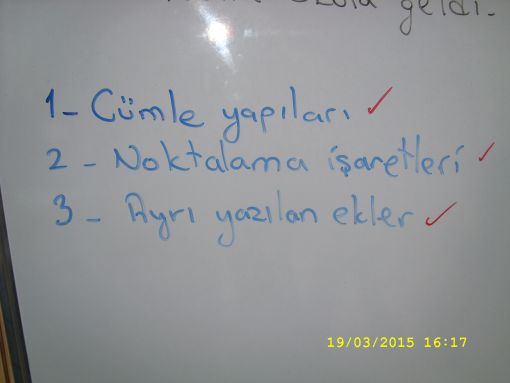 geldi.
1- Cümle yapıları
2- Noktalama işaretleri
3- Ayrı yazılan ekler
19/03/2015 16:17